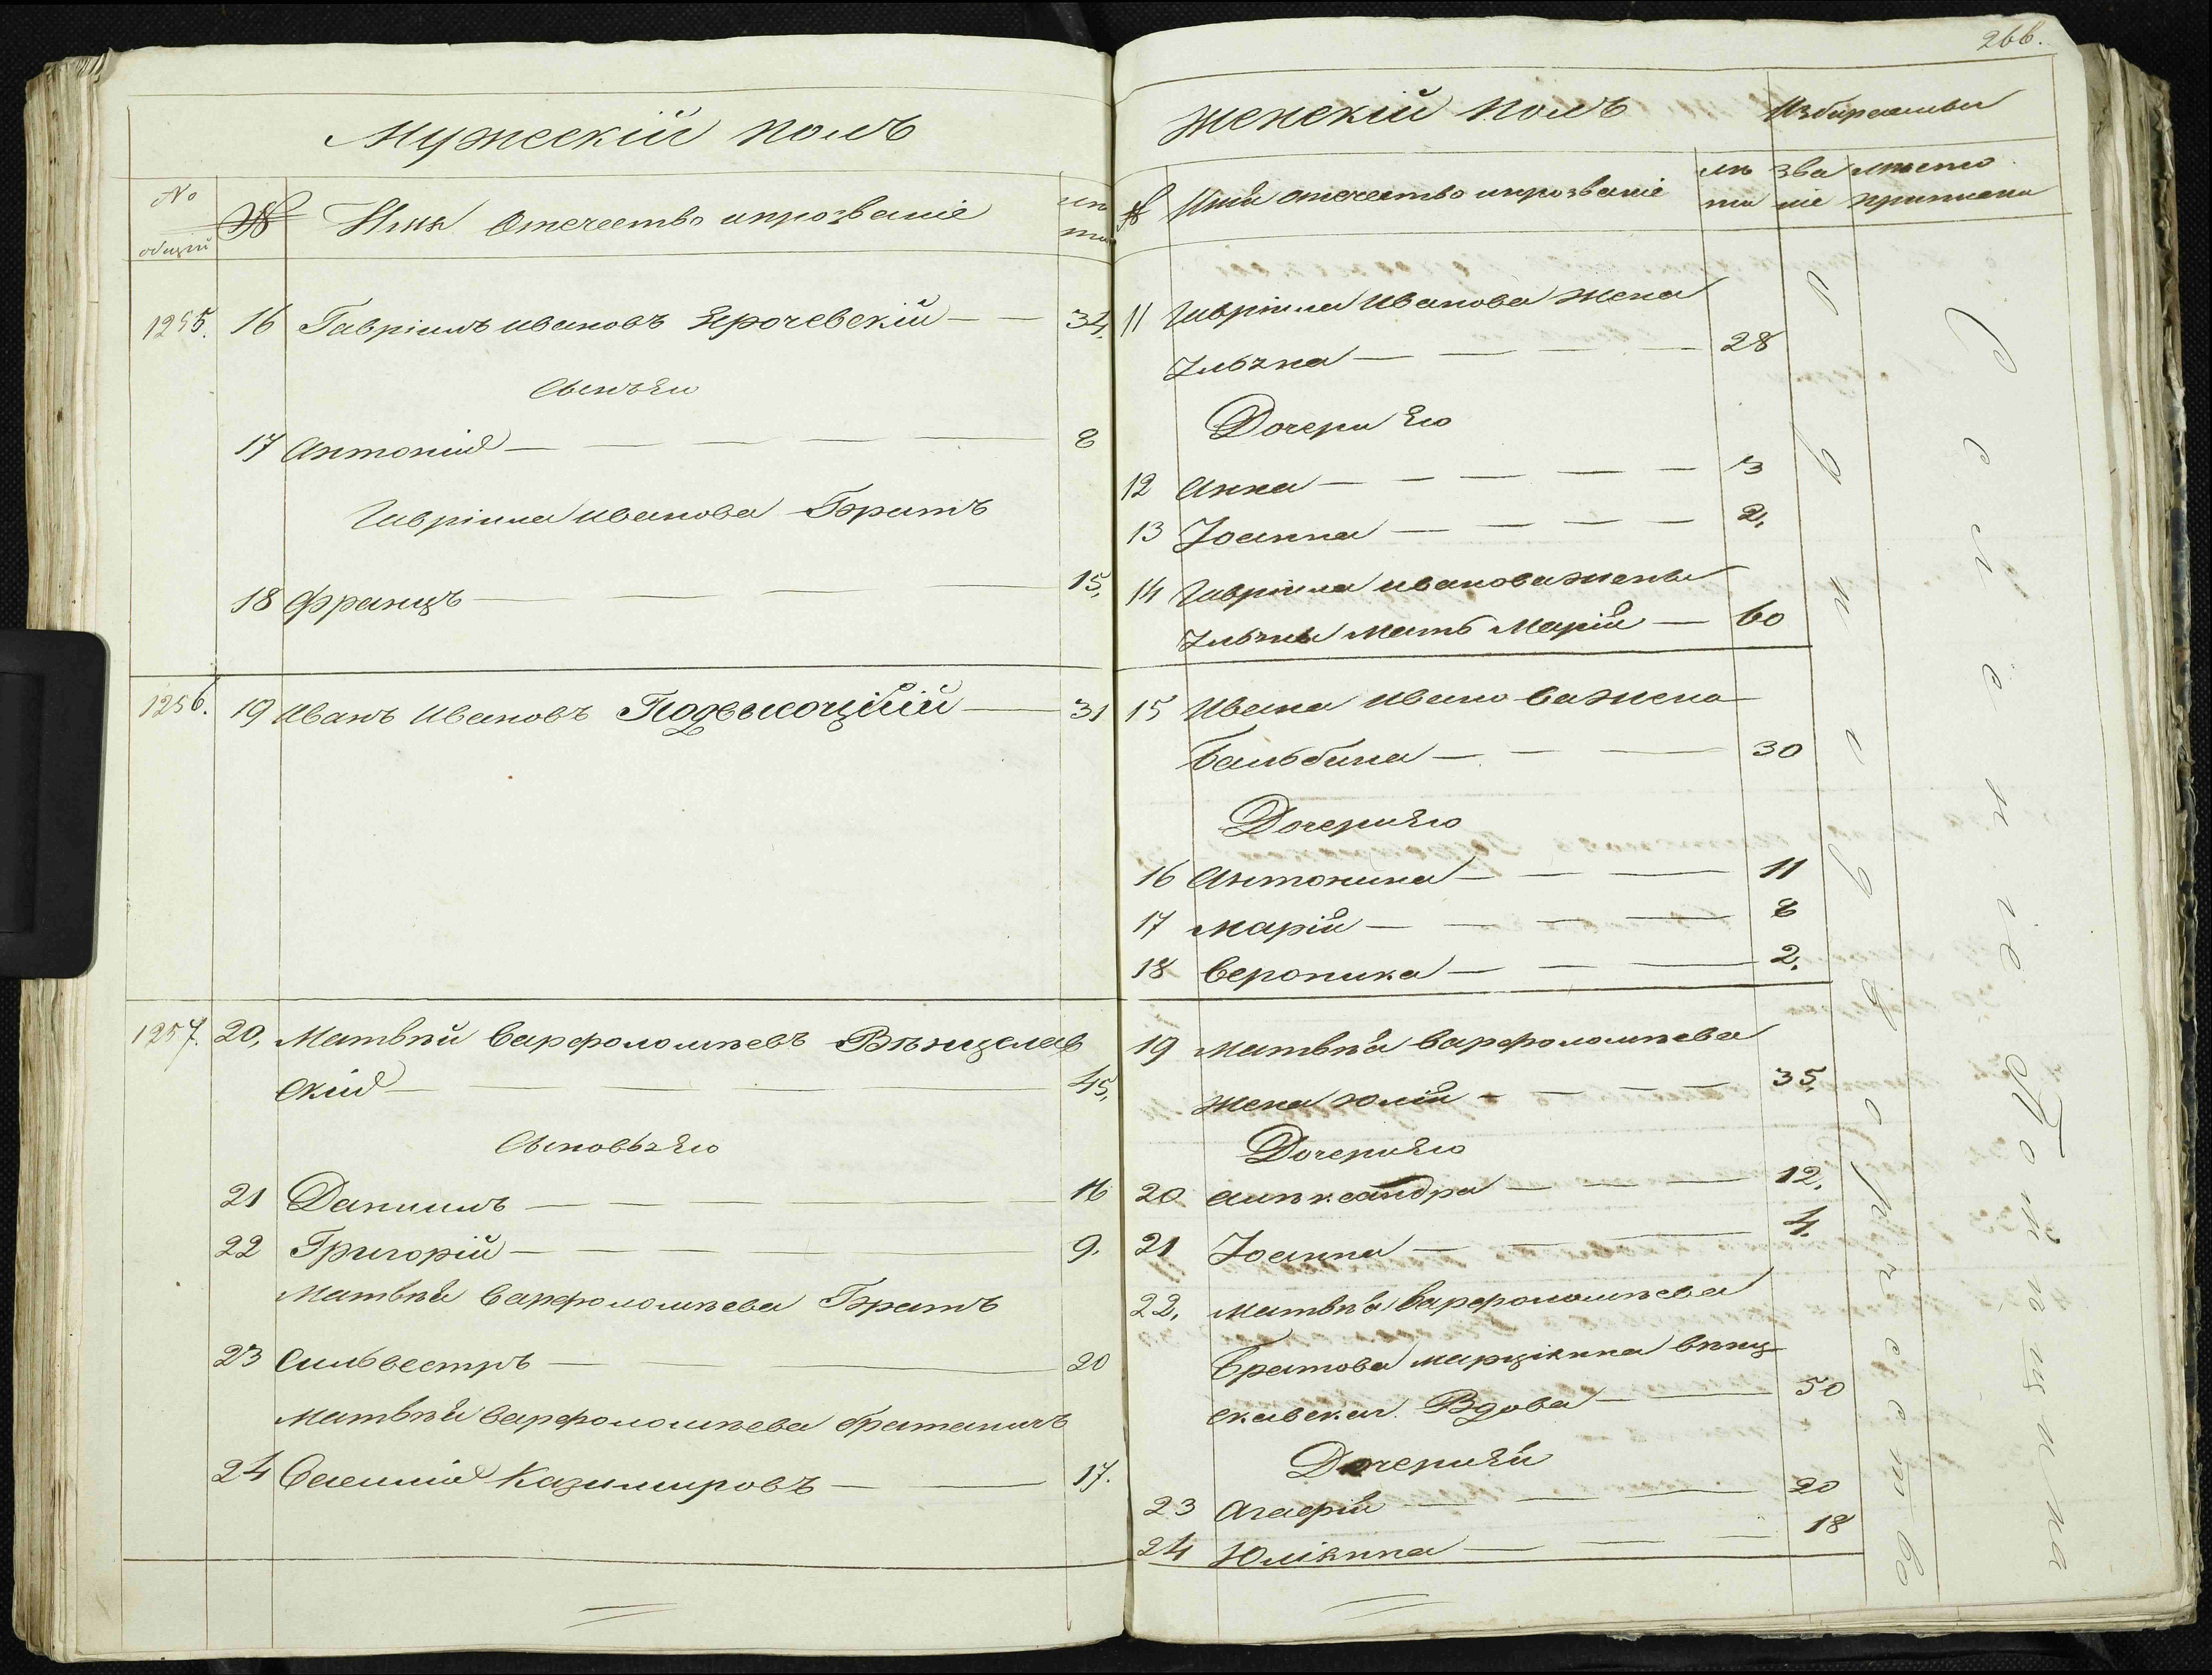 Мужеский полъ
№ общій
№
Имя Отечество ипрозваніе
лѣта
1255. 16 Гавріилъ ивановъ Ярочевскій — — 34.
Сынъ Его
17 Антоній — — — — — 8
Гавріила иванова Братъ
18 Францъ — — — — 15.
1256. 19 Иванъ Ивановъ Подвысоцкій — 31
1257. 20. Матвѣй Варфоломѣевъ Вѣнцелав
скій — — — — 45.
Сыновья Его
21 Даниилъ — — — — 16
22 Григорій — — — 9.
Матвѣя Варфоломѣева Братъ
23 Сильвестръ — — — 20
Матвѣя Варфоломѣева братаничъ
24 Казимировъ — — 17.
266.
Женскій полъ
Избираемыи
№ Имя отечество ипрозваніе
лѣ та
зва ніе
мѣсто приписки
11 Гавріила Иванова жена
— — — — 28
Дочери Его
12 Анна — — — — — 3
13 Іоанна — — — — 2.
14 Гавріила иванова жены
мать Марія — 60
15 Ивана Иванова жена
Бальбина — — — 30
Дочери Его
16 Антонина — — — 11
17 Марія — — — — 8
18 Вероника — — — 2.
19 Матвѣя Варфоломѣева
жена юлія — — — — 35.
Дочери Его
20 алѣксандра — — — — 12.
21 Іоанна — — — — 4.
22. Матвѣя Варфоломѣева
Братова марціянна вѣнц
славская Вдова — — 50
Дочери Ея
23 Агафія — — — 20
24 Юліянна — — — 18
Однодворчество
Селеніе